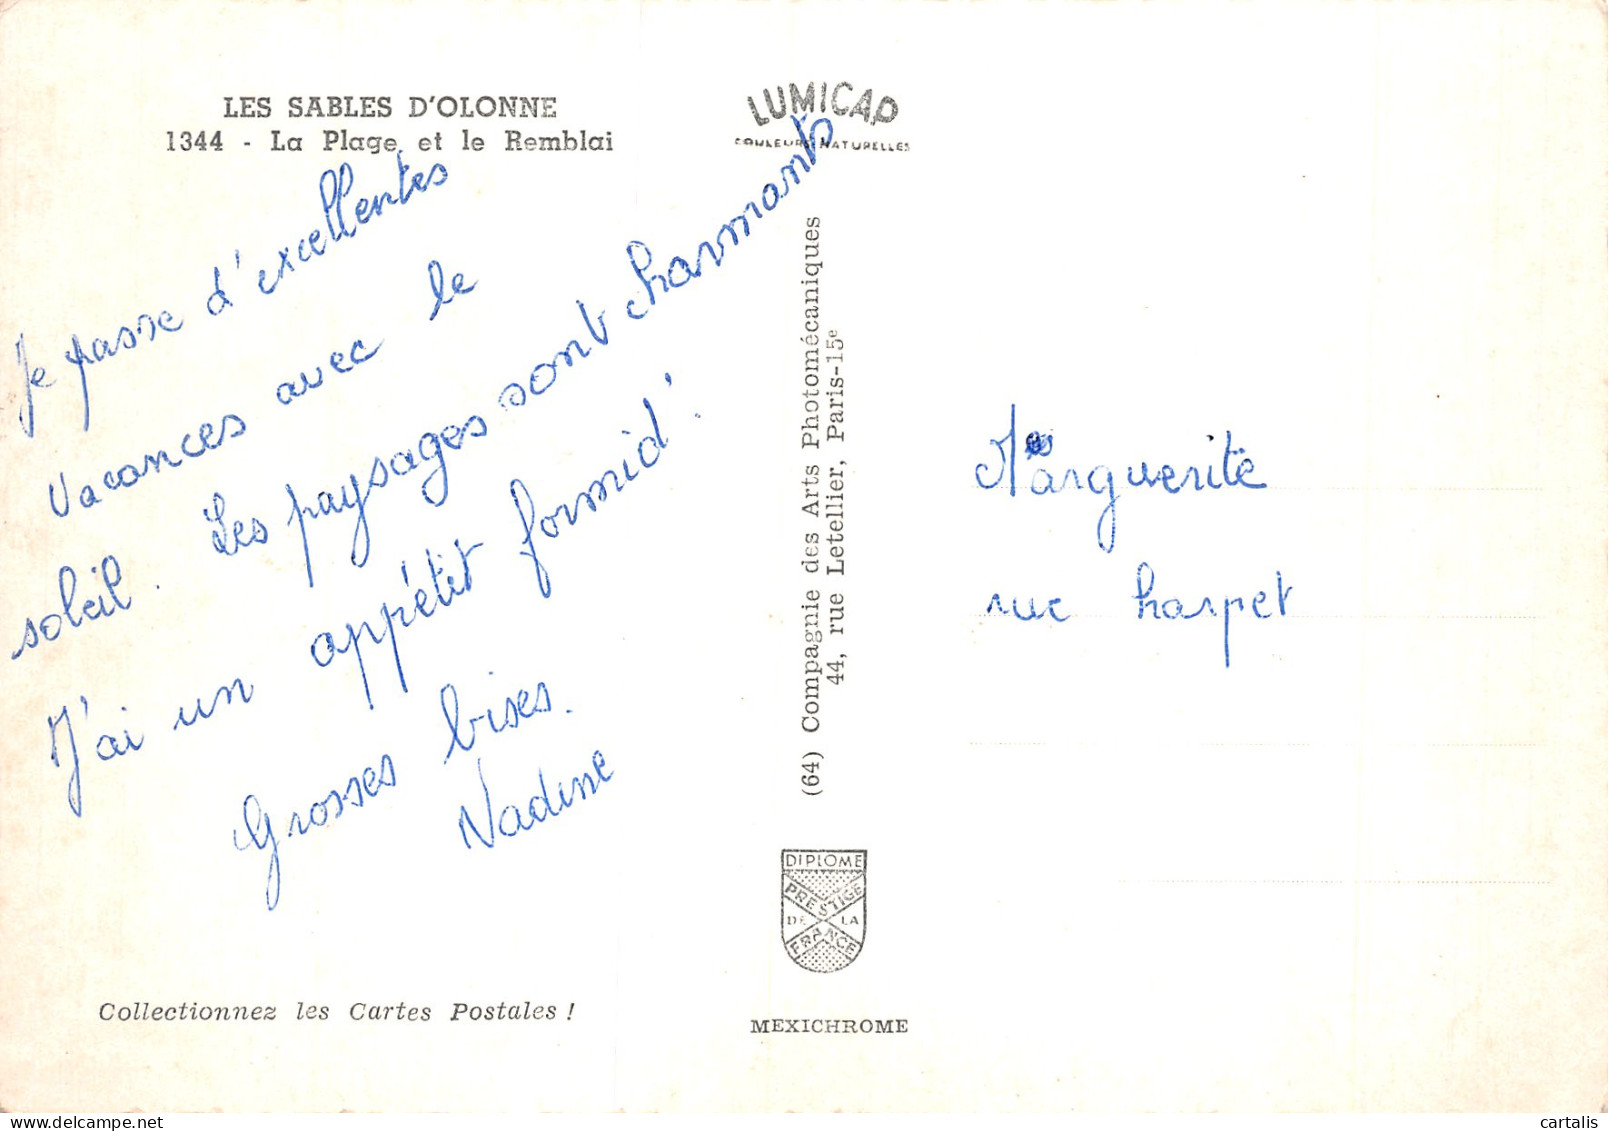 LES SABLES D'OLONNE
1344 - La Plage et le Remblai
Je passe d'excellentes
vacances avec le
soleil. Les paysages sont charmants
J'ai un appétit formid'.
Grosses bises.
Nadine
Collectionnez les Cartes Postales !
LUMICAP
COULEURS NATURELLES
(64) Compagnie des Arts Photomécaniques
44, rue Letellier, Paris-15e
DIPLOME
PRESTIGE
DE LA
FRANCE
MEXICHROME
Marguerite
rue harpet
cartalis